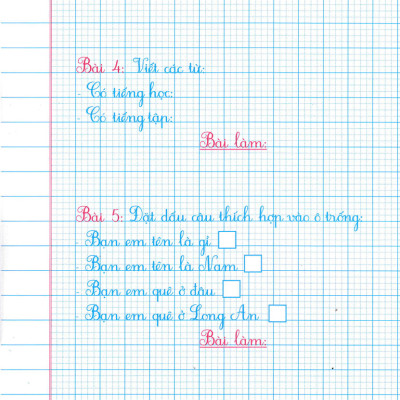 Bài 4: Viết các từ:
- Có tiếng học:
- Có tiếng tập:
Bài làm:
Bài 5: Đặt dấu câu thích hợp vào ô trống:
- Bạn em tên là gì
- Bạn em tên là Nam
- Bạn em quê ở đâu
- Bạn em quê ở Long An
Bài làm: